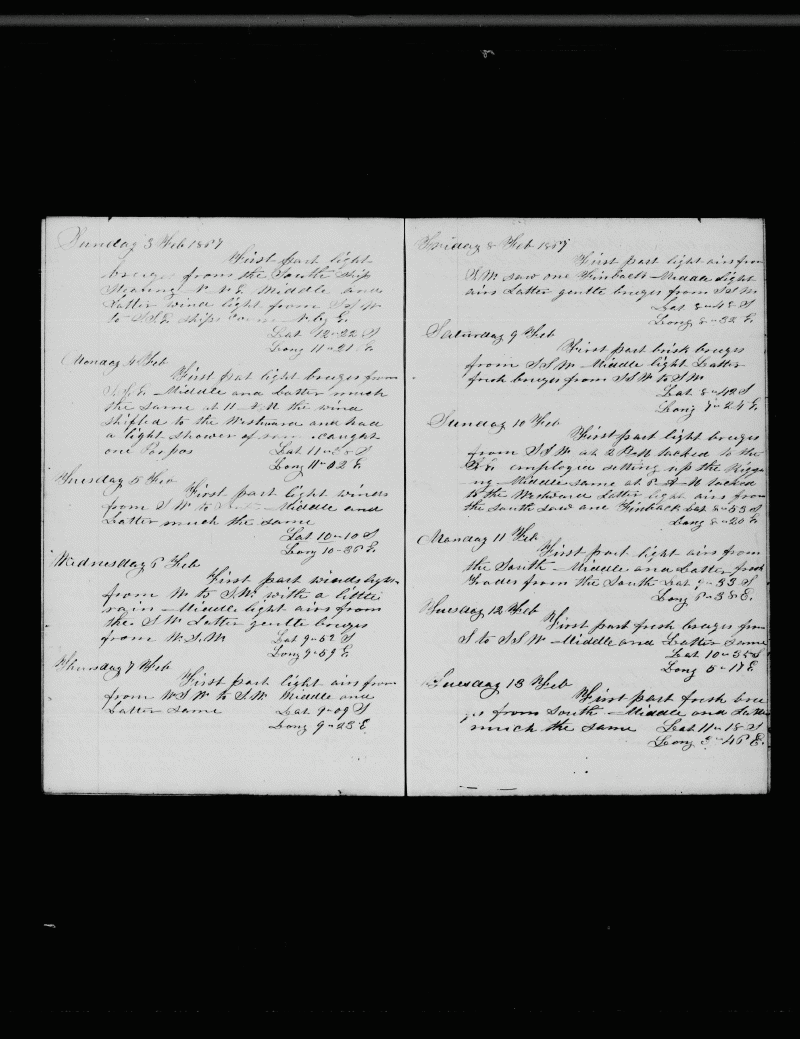 Sunday 3 Feb 1857
First part light
breezes from the South ship
Stearing N N E Middle and
Latter wind light from S S W
to S S E ships Course N by E
Lat 12 - 22 S
Long 11 - 21 E
Monday 4 Feb
First part light breezes from
S S E - Middle and Latter much
the same at 11 A M the wind
shifted to the Westward and had
a light shower of rain caught
one Porpos Lat 11 S
Long 11 - 02 E
Tuesday 5 Feb
First part light winds
from S W to Middle and
Latter much the same
Lat 10 - 10 S
Long 10 - 36 E
Wednesday 6 Feb
First part winds light
from W to S.W. with a little
rain - Middle light airs from
the S W Latter gentle breezes
from W.S.W. Lat 9 - 52 S
Long 9 - 59 E
Thursday 7 Feb
First part light airs from
from W S W to S W Middle and
Latter same Lat 9 - 09 S
Long 9 - 23 E
Friday 8 Feb 1857
First part light airs from
S.W. saw one Finback - Middle light
airs Latter gentle breezes from S S W
Lat 8 - 48 S
Long 8 - 32 E
Saturday 9 Feb
First part brisk breezes
from S S W - Middle light Latter
fresh breezes from S S W to S W
Lat 8 - 42 S
Long 7 - 24 E
Sunday 10 Feb
First part light breezes
from S S W at 2 P M tacked to the
employed setting up the Rigg-
ng - Middle same at A M tacked
to the Westward Latter light airs from
the south saw one Finback Lat 8 - 53 S
Long 8 - 20 E
Monday 11 Feb
First part light airs from
the South - Middle and Latter fresh
trades from the South Lat 9 - 33 S
Long 6 - 38 E.
Tuesday 12 Feb
First part fresh breezes from
S to S S W - Middle and Latter same
Lat 10 - 35 S
Long 5 - 17 E
Tuesday 13 Feb
First part fresh bree
zes from South - Middle and Latter
much the same Lat 11 - 18 S
Long 3 - 46 E.